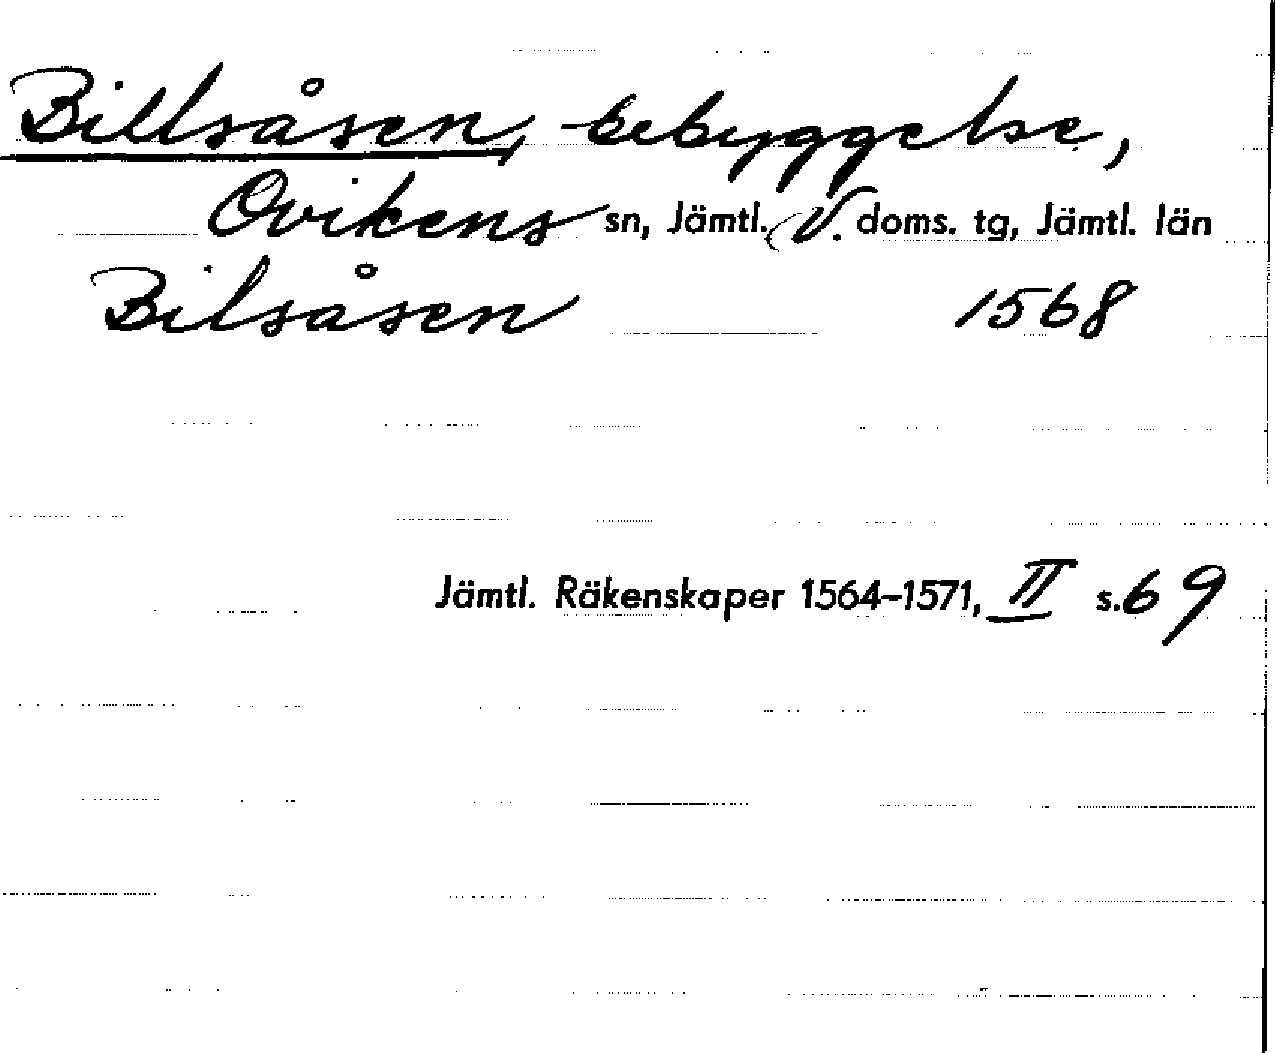 Billsåsen, bebyggelse,
Ovikens sn, Jämtl. V. doms. tg, Jämtl. län
Bilsåsen 1568
Jämtl. Räkenskaper 1564-1571, II s. 69